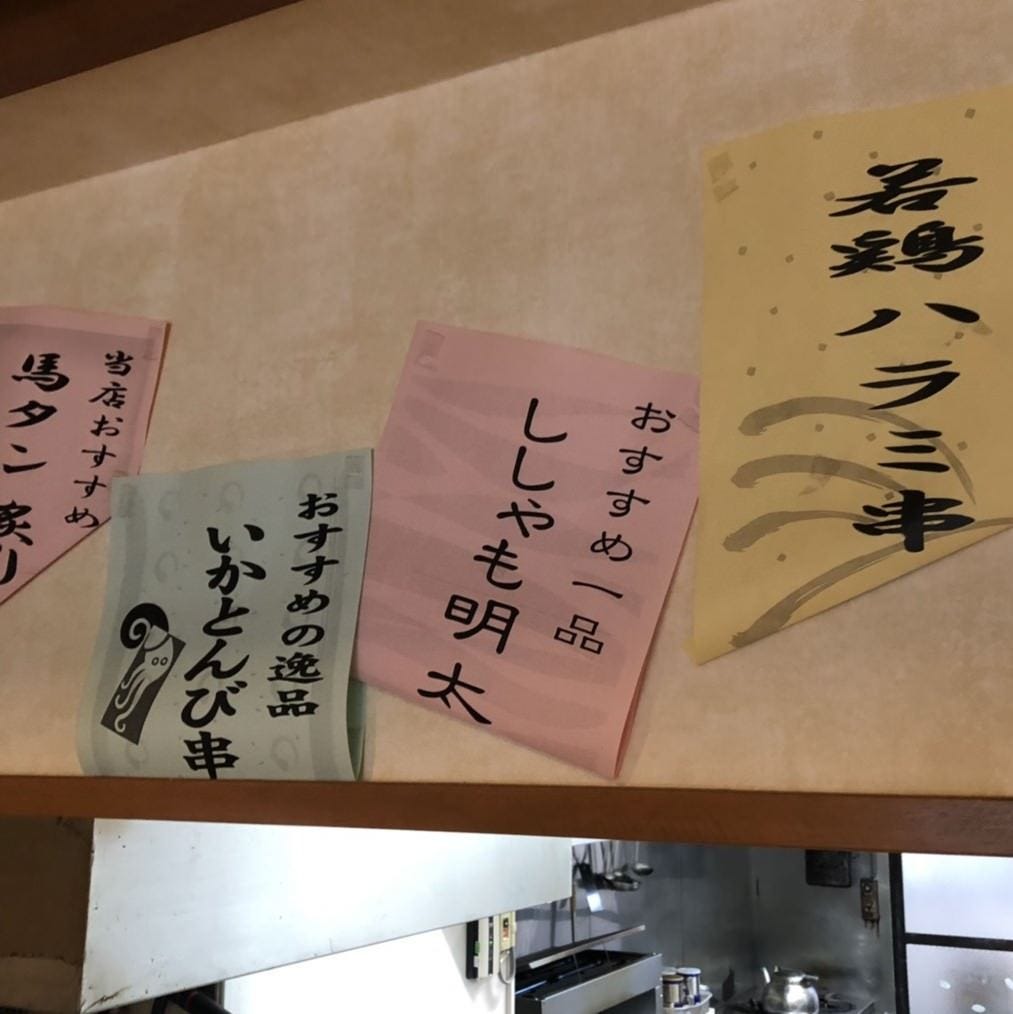 若鶏ハラミ串
おすすめ一品
ししゃも明太
おすすめの逸品
いかとんび串
当店おすすめ
馬タン炙り